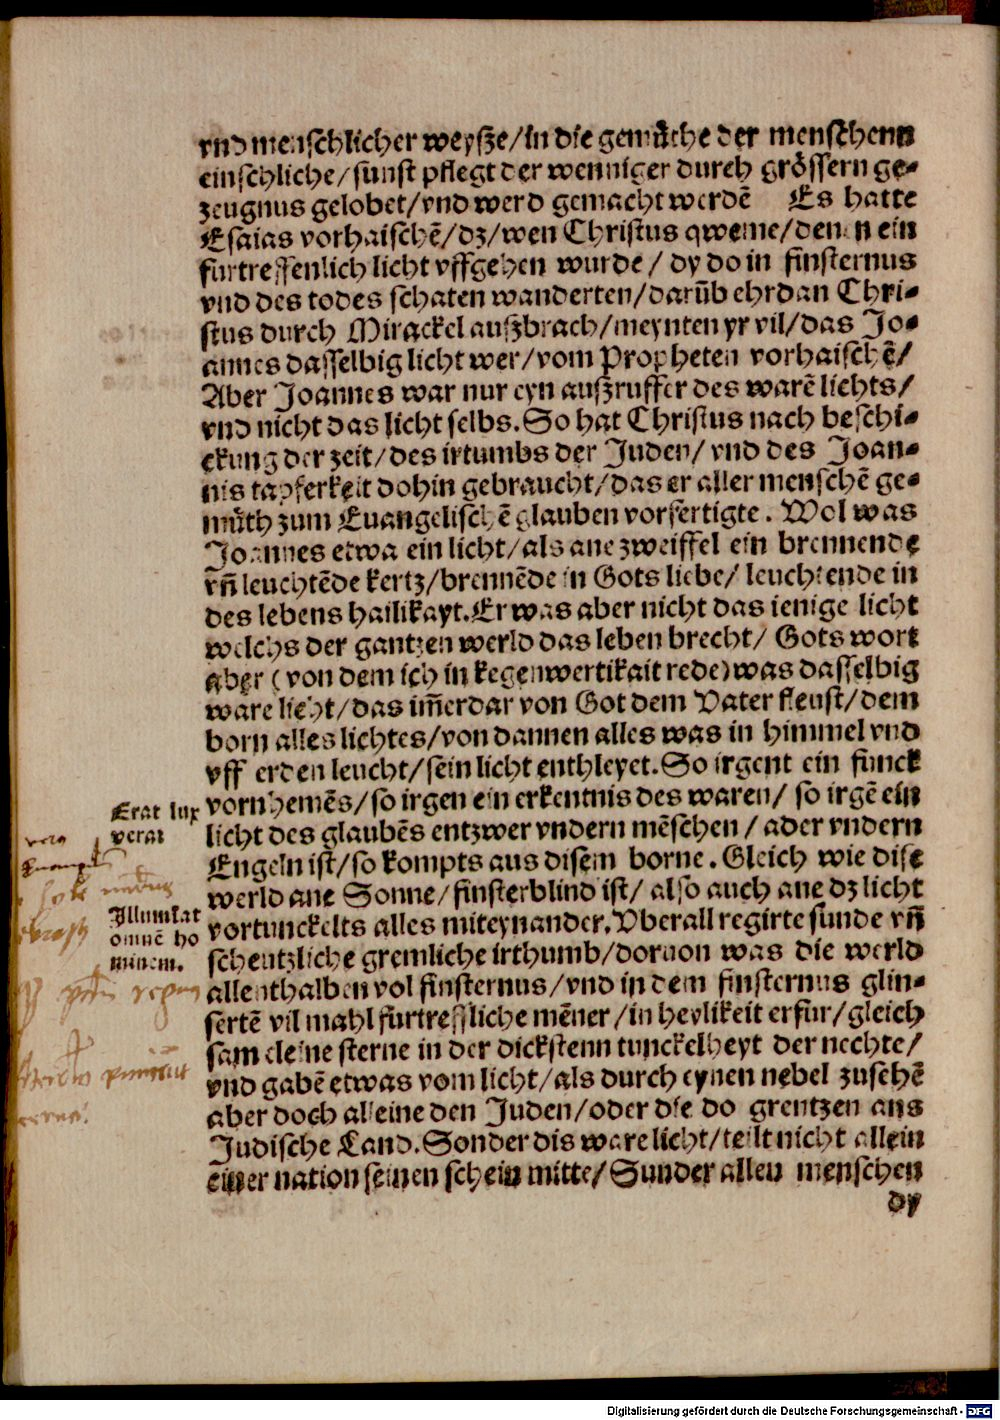 vnd menschlicher weyſze/in die gemůthe der menſchenn
einſchliche/ſunſt pflegt der wenniger durch grőſſern ge⸗
zeugnus gelobet/vnd werd gemacht werdẽ Es hatte
Eſaias vorhaiſchẽ/dz/wen Chriſtus qweme/denen ein
furtreffenlich licht vffgehen wurde/ dy do in finſternus
vnd des todes ſchaten wanderten/darũb ehrdan Chri⸗
ſtus durch Mirackel auſzbrach/meynten yr vil/das Jo⸗
annes daſſelbig licht wer/vom Propheten vorhaiſchẽ/
Aber Joannes war nur eyn auſzruffer des warẽ lichts/
vnd nicht das licht ſelbs. So hat Chriſtus nach beſchi⸗
ckung der zeit/des irtumbs der Juden/ vnd des Joan⸗
nis tapferkeit dohin gebraucht/das er aller menſchẽ ge⸗
můth zum Euangeliſchẽ glauben vorfertigte. Wol was
Joannes etwa ein licht/als ane zweiffel ein brennende
vñ leuchtẽde kertz/brennẽde in Gots liebe/ leuchtende in
des lebens hailikayt. Er was aber nicht das ienige licht
welchs der gantzen werld das leben brecht/ Gots wort
aber (von dem ich in kegenwertikait rede) was daſſelbig
ware licht/das im̃erdar von Got dem Vater fleuſt/dem
born alles lichtes/von dannen alles was in himmel vnd
vff erden leucht/ſein licht enthleyet. So irgent ein funck
vornhemẽs/ſo irgen ein erkentnis des waren/ ſo irgẽ ein
Erat lux
verai
licht des glaubẽs entzwer vndern mẽſchen/ ader vndern
Engeln iſt/ſo kompts aus diſem borne. Gleich wie diſe
werld ane Sonne/finſterblind iſt/ alſo auch ane dz licht
Illumĩat
omnẽ ho
minem.
vortunckelts alles miteynander. Vberall regirte ſunde vñ
ſcheutzliche gremliche irthumb/doruon was die werld
allenthalben vol finſternus/vnd in dem finſternus glin⸗
ſertẽ vil mahl furtreſſliche mẽner/in heylikeit erfur/gleich
ſam cleine ſterne in der dickſtenn tunckelheyt der nechte/
vnd gabẽ etwas vom licht/als durch eynen nebel zuſehẽ
aber doch alleine den Juden/oder die do grentzen ans
Judiſche Land. Sonder dis ware licht/teilt nicht allein
einer nation ſeinen ſchein mitte/Sunder allen menſchen
dy
Digitalisierung gefördert durch die Deutsche Forschungsgemeinschaft - DFG